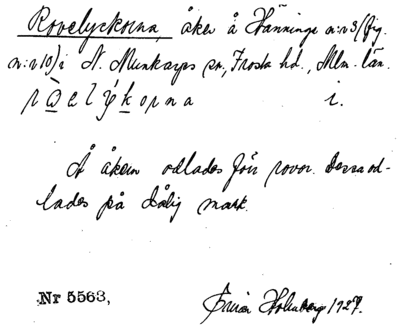 Rovelyckorna åker å Hänninge n:r 3 (fig.
n:r 10) i S. Munkarps sn, Frosta hd., Mlm. län.
i.
Å åkern odlades förr rovor. Dessa od-
lades på dålig mark.
Nr 5563, Holmberg 1927.